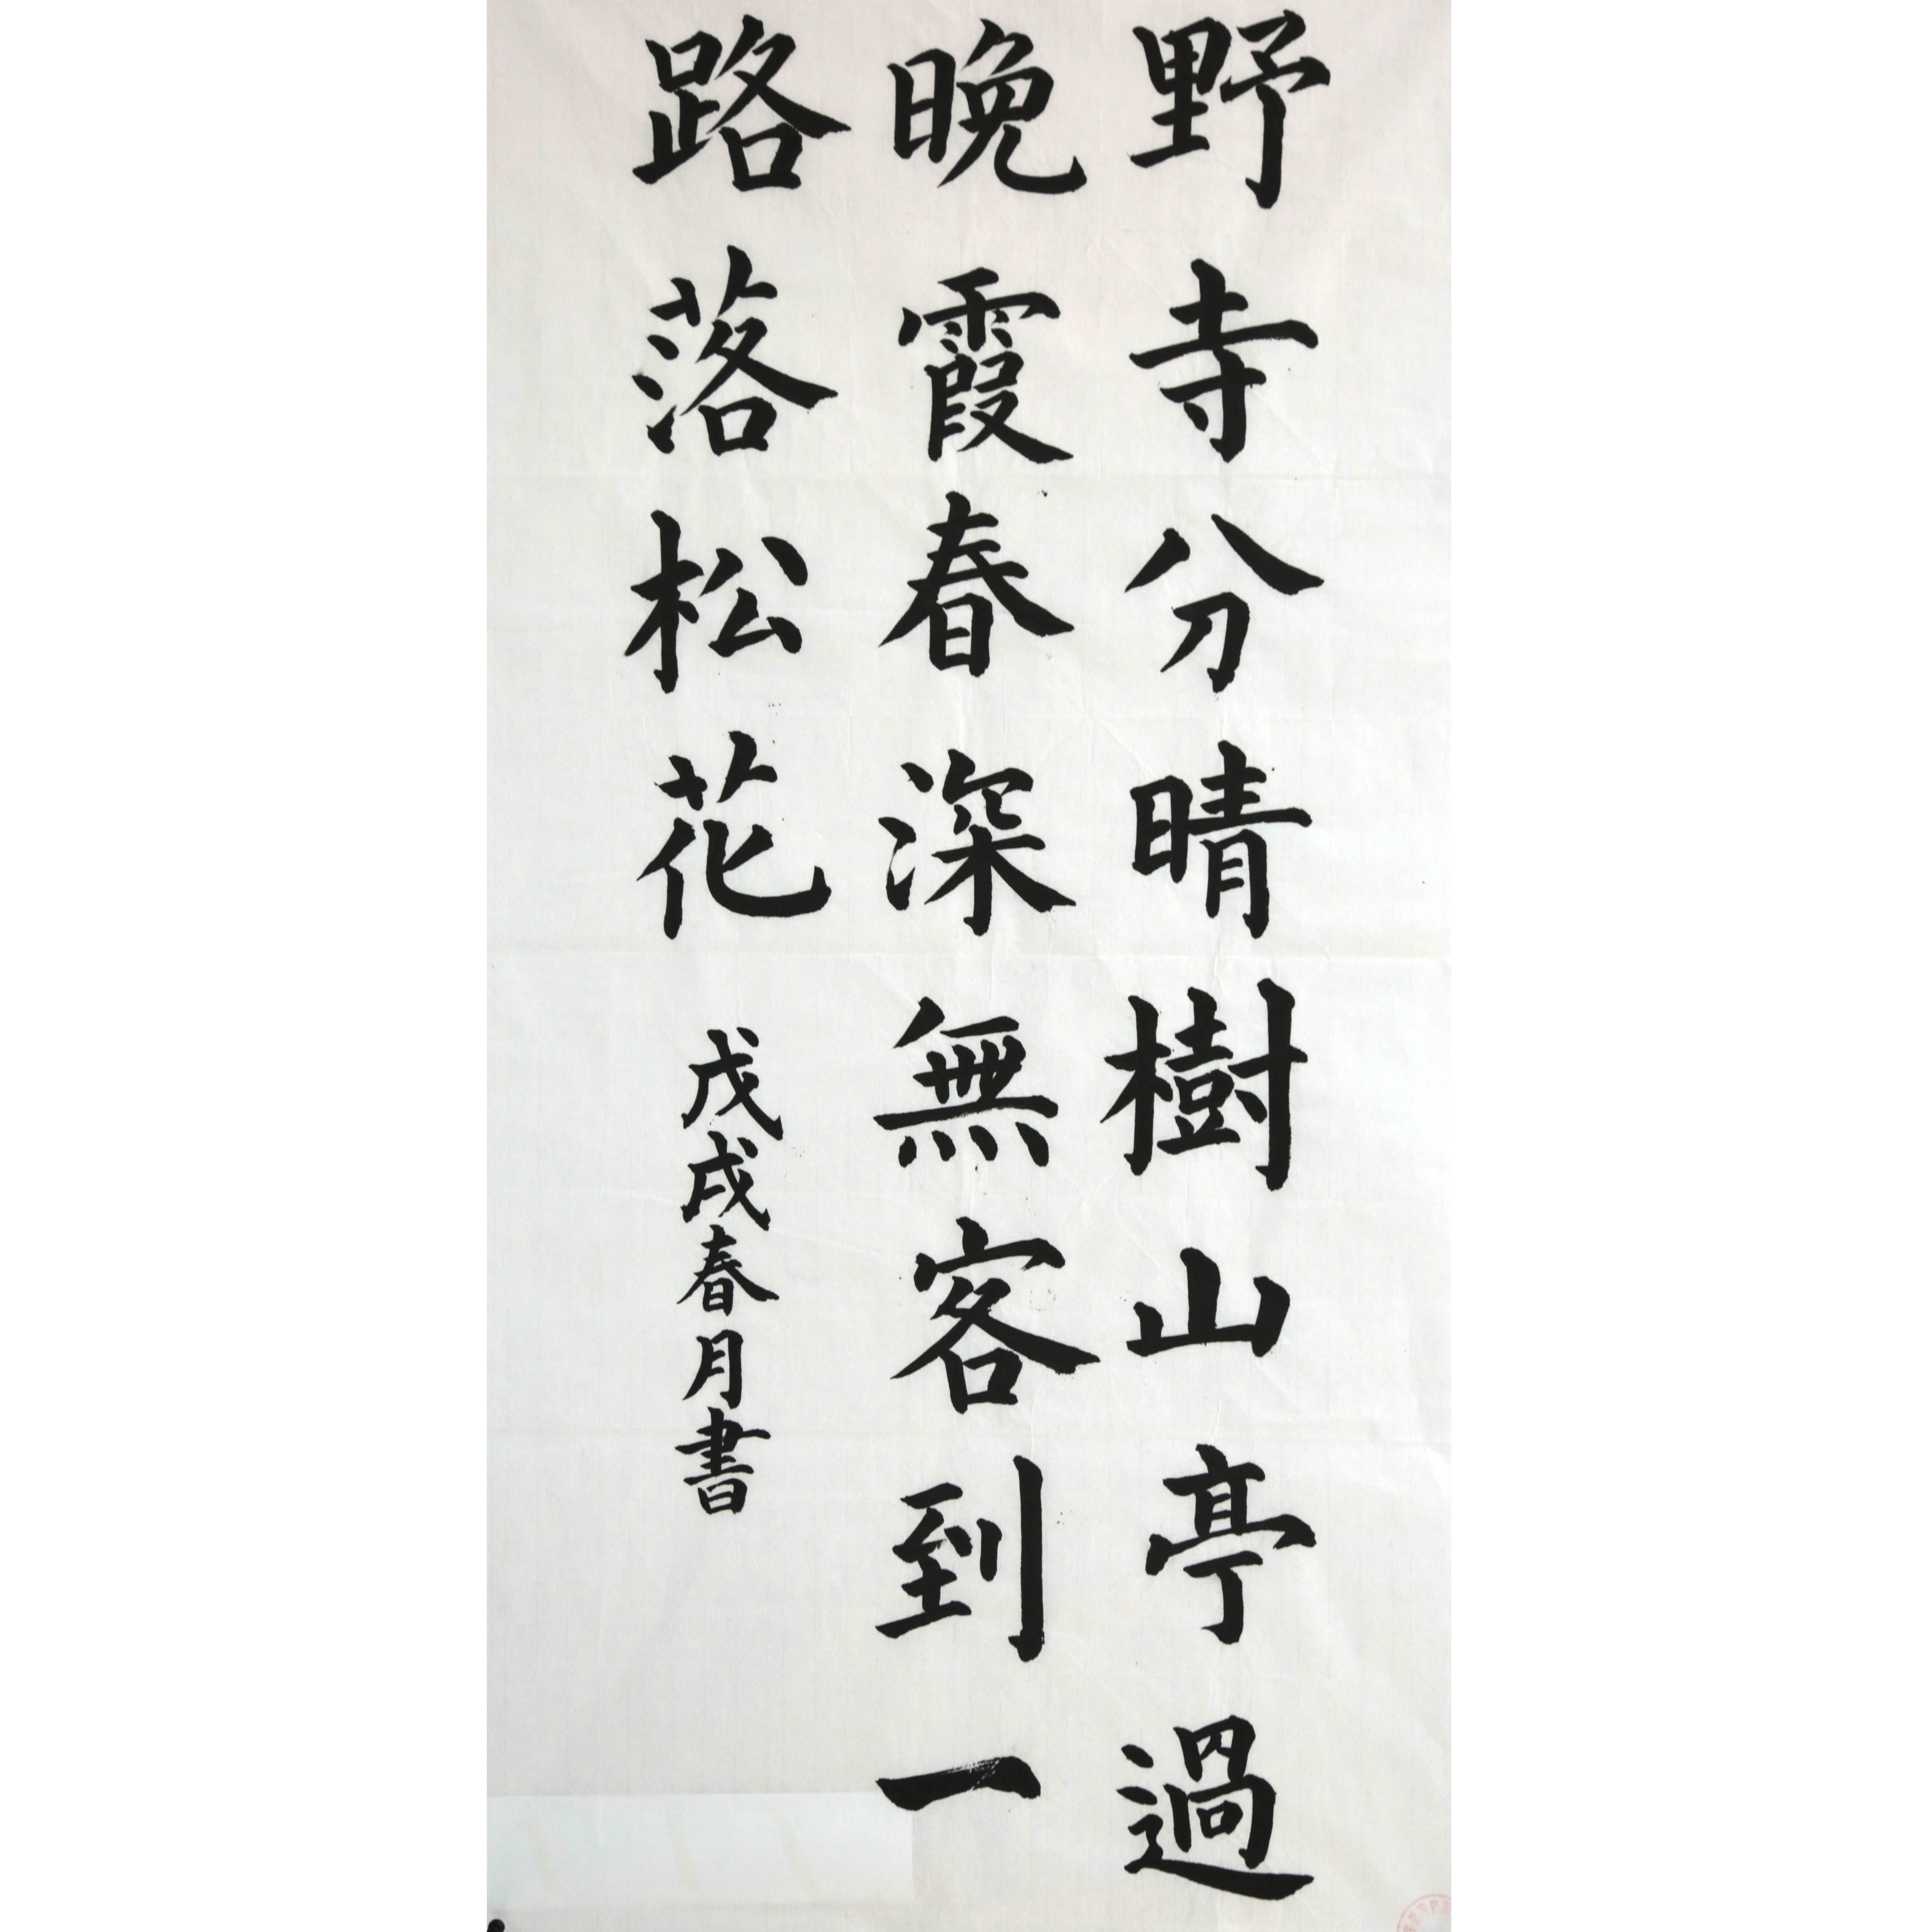 野寺分晴樹山亭過
晚霞春深無客到一
路落松花
戊戌春月書